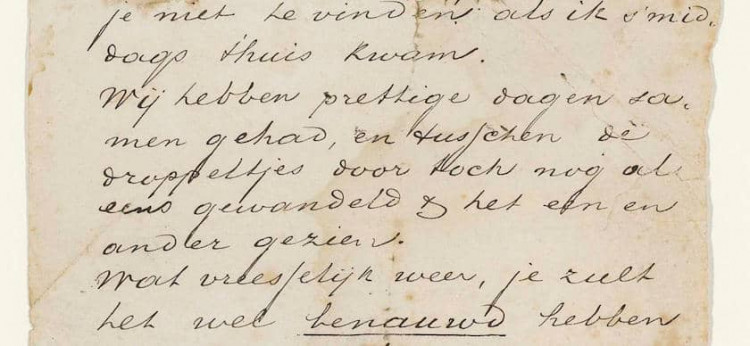 je niet te vinden als ik s'mid-
dags thuis kwam.
Wij hebben prettige dagen sa-
men gehad, en tusschen de
droppeltjes door toch nog al
eens gewandeld & het een en
ander gezien.
Wat vreesselijk weer, je zult
het wel benauwd hebben